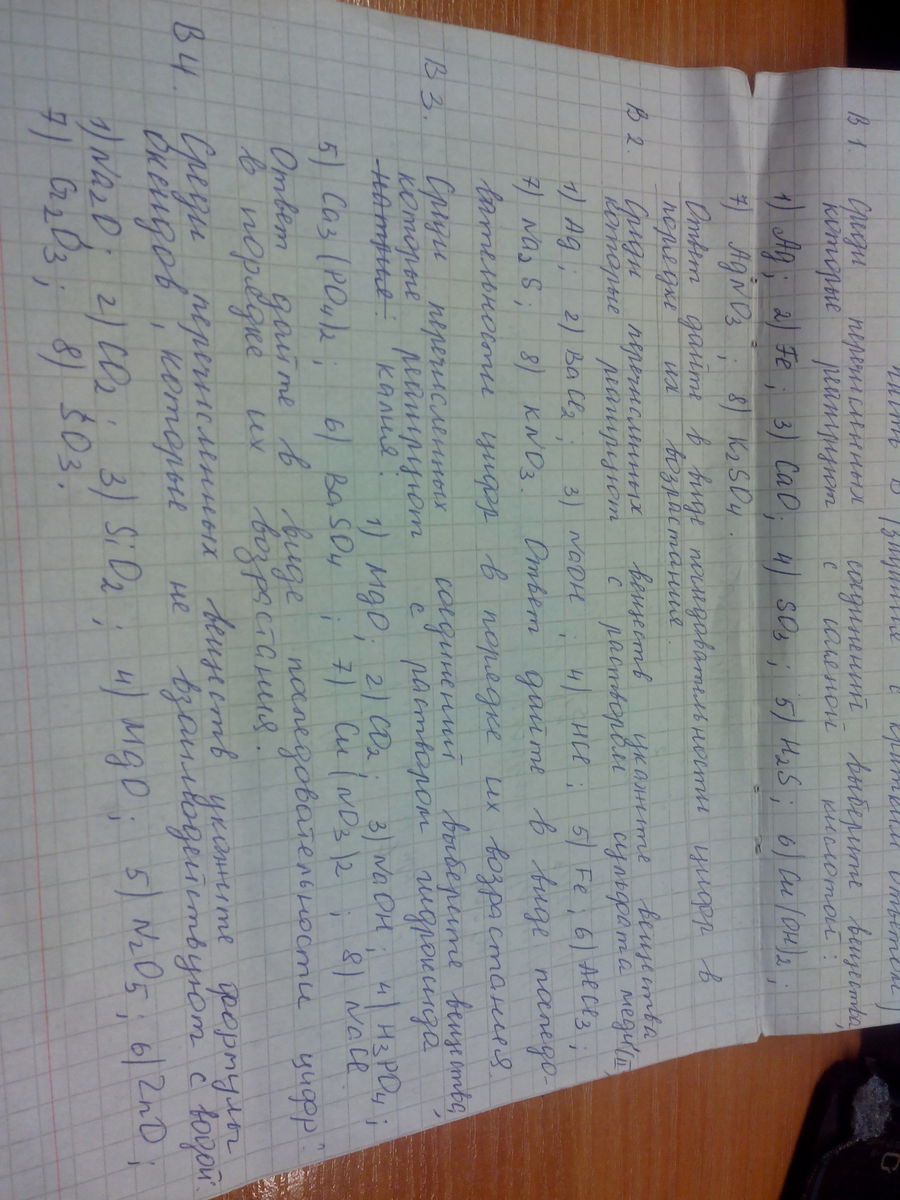 часть В (задания с кратким ответом)
В 1. Среди перечисленных соединений выберите вещества,
которые реагируют с соляной кислотой:
1) Ag; 2) Fe; 3) CaO; 4) SO3; 5) H2S; 6) Cu(OH)2;
7) AgNO3; 8) K2SO4.
Ответ дайте в виде последовательности цифр в
порядке их возрастания.
В 2. Среди перечисленных веществ укажите вещества
которые реагируют с раствором сульфата меди(II)
1) Ag; 2) BaCl2; 3) NaOH; 4) HCl; 5) Fe; 6) AlCl3;
7) Na2S; 8) KNO3. Ответ дайте в виде последо-
вательности цифр в порядке их возрастания.
В 3. Среди перечисленных соединений выберите вещества,
которые реагируют с раствором гидроксида
натрия: калия: 1) MgO; 2) CO2; 3) NaOH; 4) H3PO4;
5) Ca3(PO4)2; 6) BaSO4; 7) Cu(NO3)2; 8) NaCl.
Ответ дайте в виде последовательности цифр
в порядке их возрастания.
В 4. Среди перечисленных веществ укажите формулы
оксидов, которые не взаимодействуют с водой:
1) Na2O; 2) CO2; 3) SiO2; 4) MgO; 5) N2O5; 6) ZnO;
7) Cr2O3; 8) SO3.